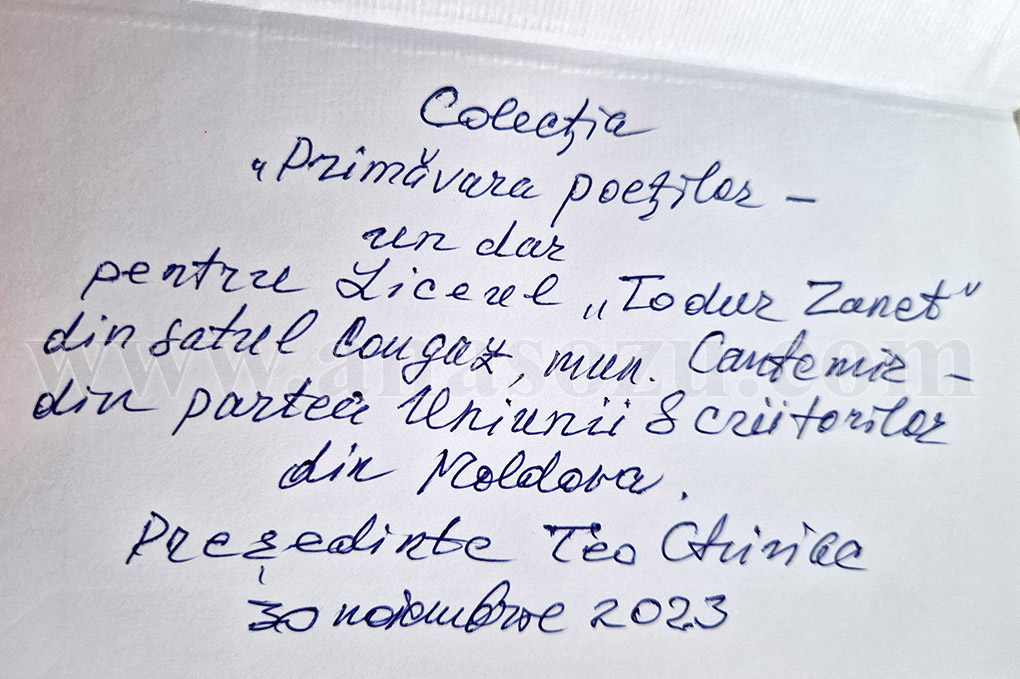 Colecția
„Primăvara poeților –
un dar
pentru Liceul „Todur Zanet”
din satul Congaz, mun. Cantemir –
din partea Uniunii Scriitorilor
din Moldova.
Președinte Teo Chiriac
30 noiembrie 2023
www.anasozu.com